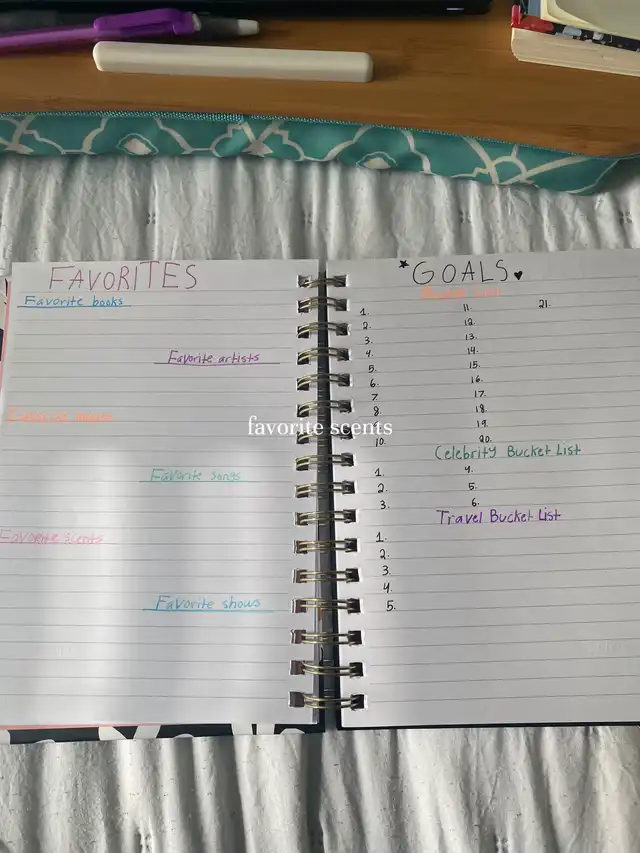 FAVORITES
Favorite books
Favorite artists
Favorite
Favorite songs
Favorite scents
Favorite shows
favorite scents
GOALS
Bucket List
1. 11. 21.
2. 12.
3. 13.
4. 14.
5. 15.
6. 16.
7. 17.
8. 18.
9. 19.
10. 20.
Celebrity Bucket List
1. 4.
2. 5.
3. 6.
Travel Bucket List
1.
2.
3.
4.
5.